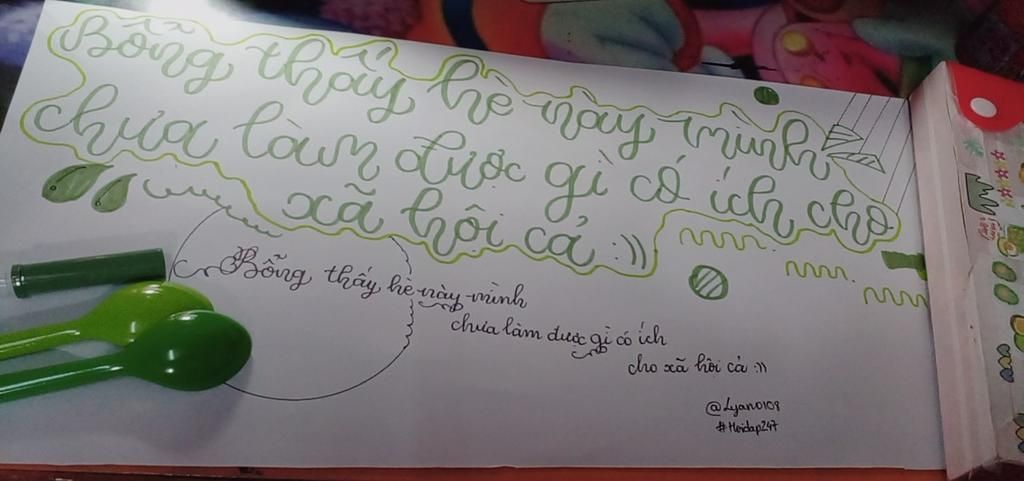 Bỗng thấy hè này mình
chưa làm được gì có ích cho
xã hội cả :))
Bỗng thấy hè này mình
chưa làm được gì có ích
cho xã hội cả :))
@Lyan0108
#Hoidap247